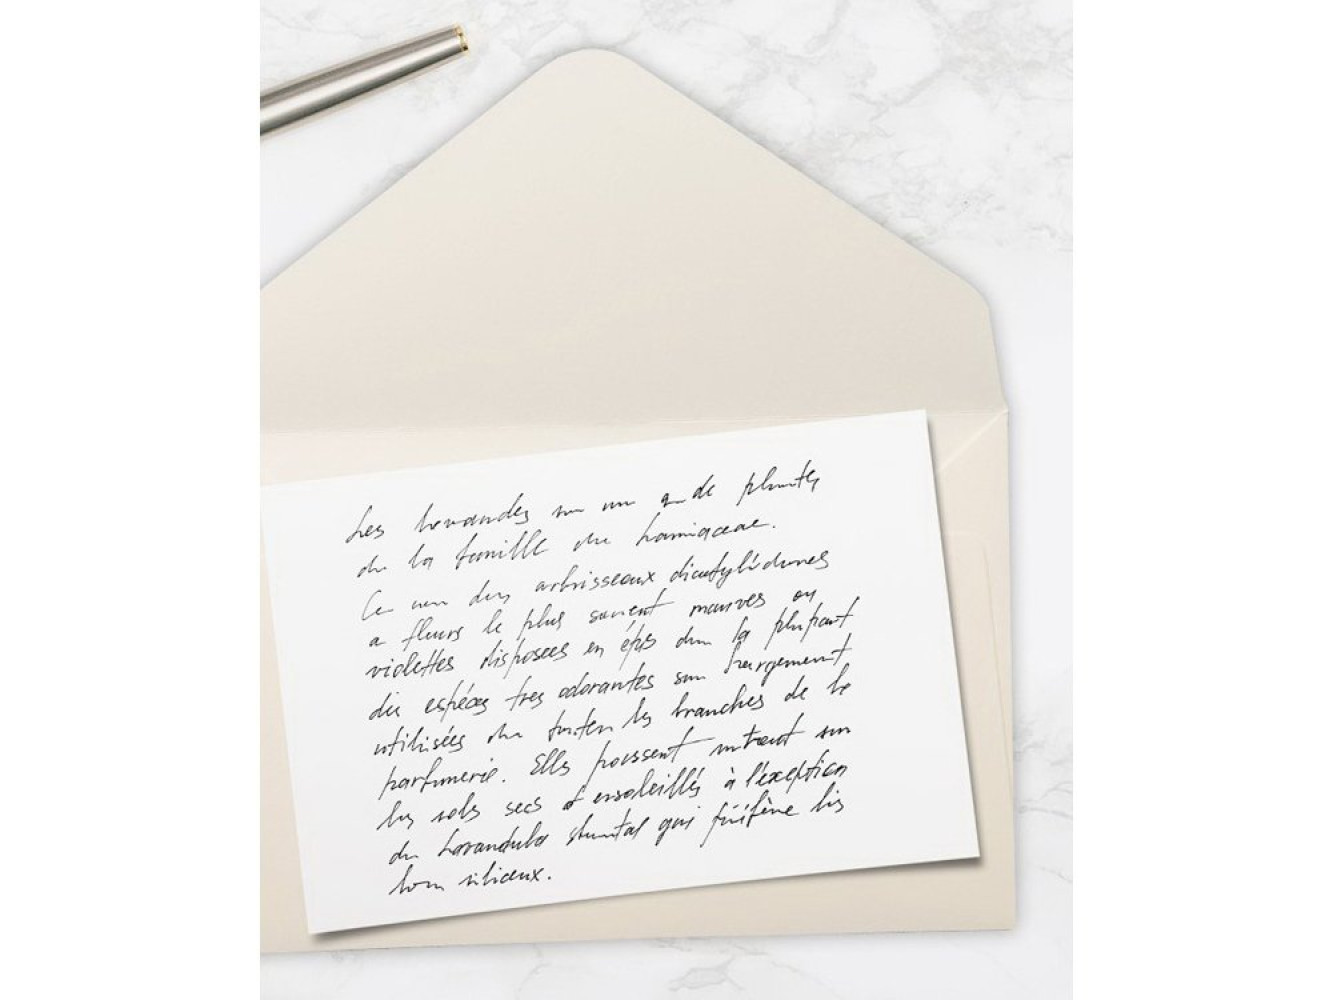 Les lavandes sont un genre de plantes
de la famille des Lamiaceae.
Ce sont des arbrisseaux dicotylédones
a fleurs le plus souvent mauves ou
violettes disposees en épis dans la plupart
des espéces tres odorantes sont largement
utilisées dans toutes les branches de la
parfumerie. Elles poussent surtout sur
les sols secs et ensoleillés à l'exeption
du Lavandula qui préfère les
siliceux.